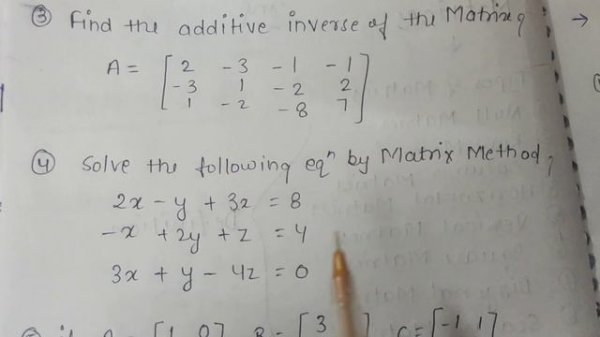 ③ Find the additive inverse of the Matrix,
A = [ 2 -3 -1 -1
-3 1 -2 2
1 -2 -8 7 ]
④ Solve the following eqⁿ by Matrix Method,
2x - y + 3z = 8
-x + 2y + z = 4
3x + y - 4z = 0
[1 0] [3 C = [-1 1]